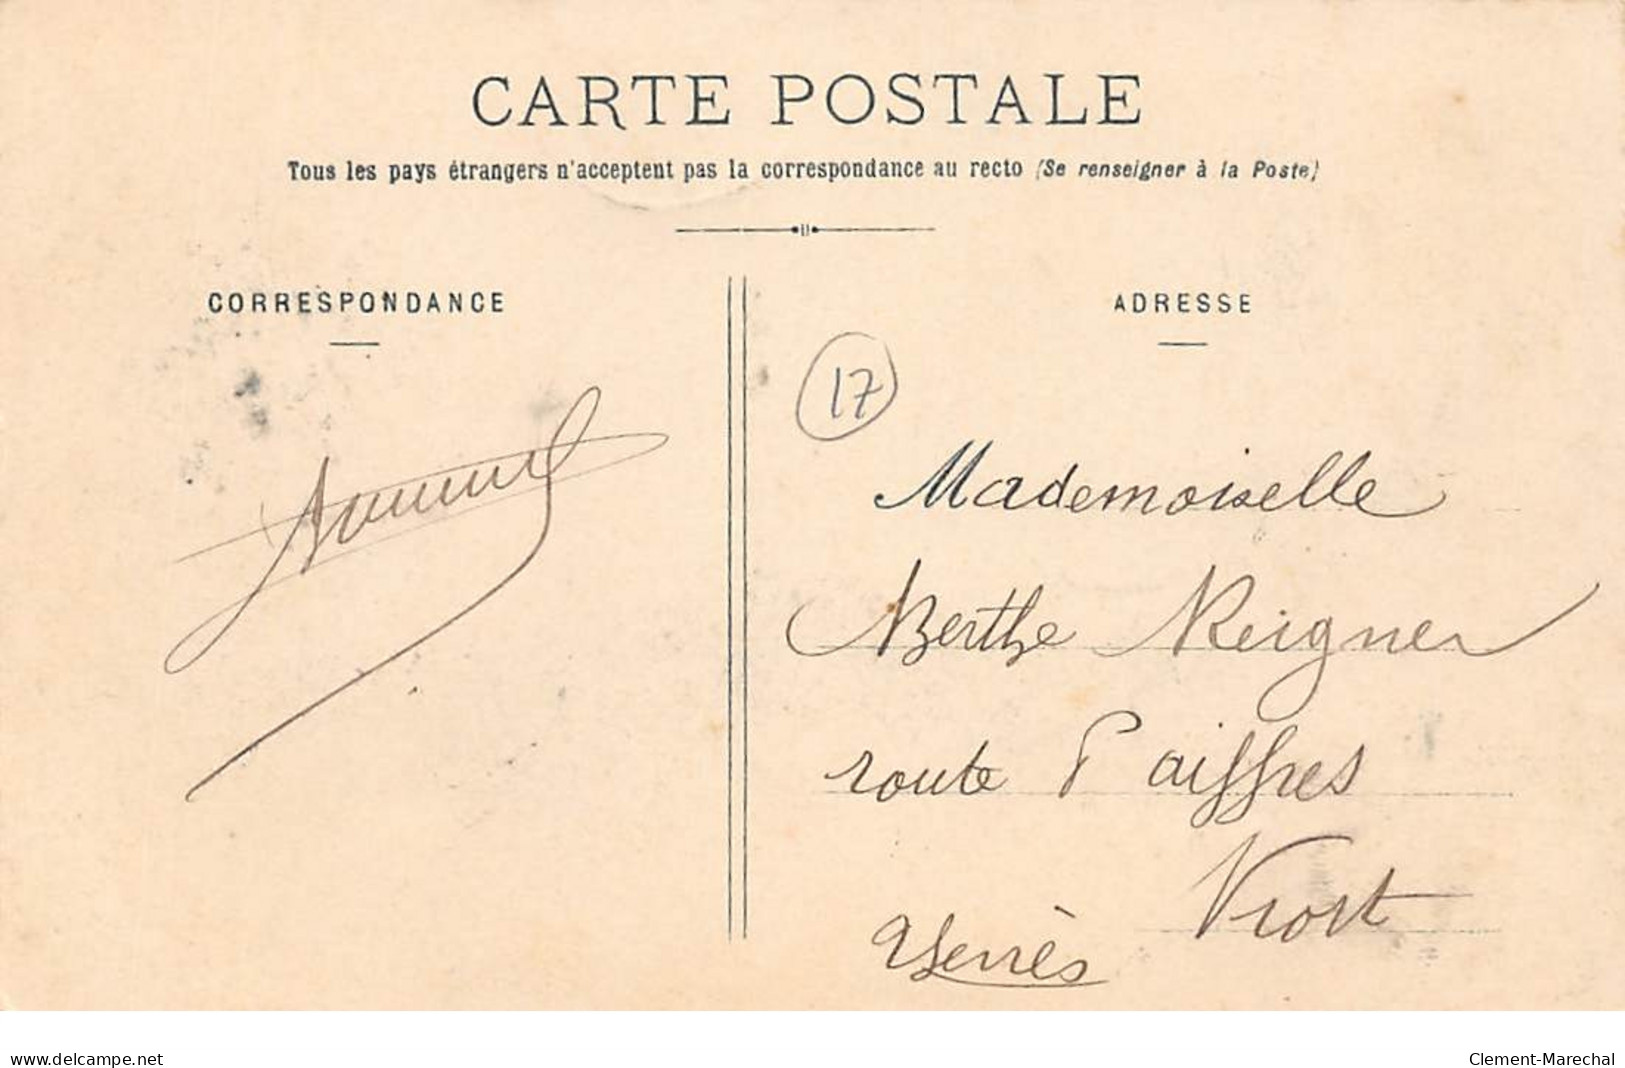 CARTE POSTALE
Tous les pays étrangers n'acceptent pas la correspondance au recto (Se renseigner à la Poste)
CORRESPONDANCE
ADRESSE
17
Mademoiselle
Berthe Reigner
route d'aiffres
Niort
www.delcampe.net
Clement-Marechal